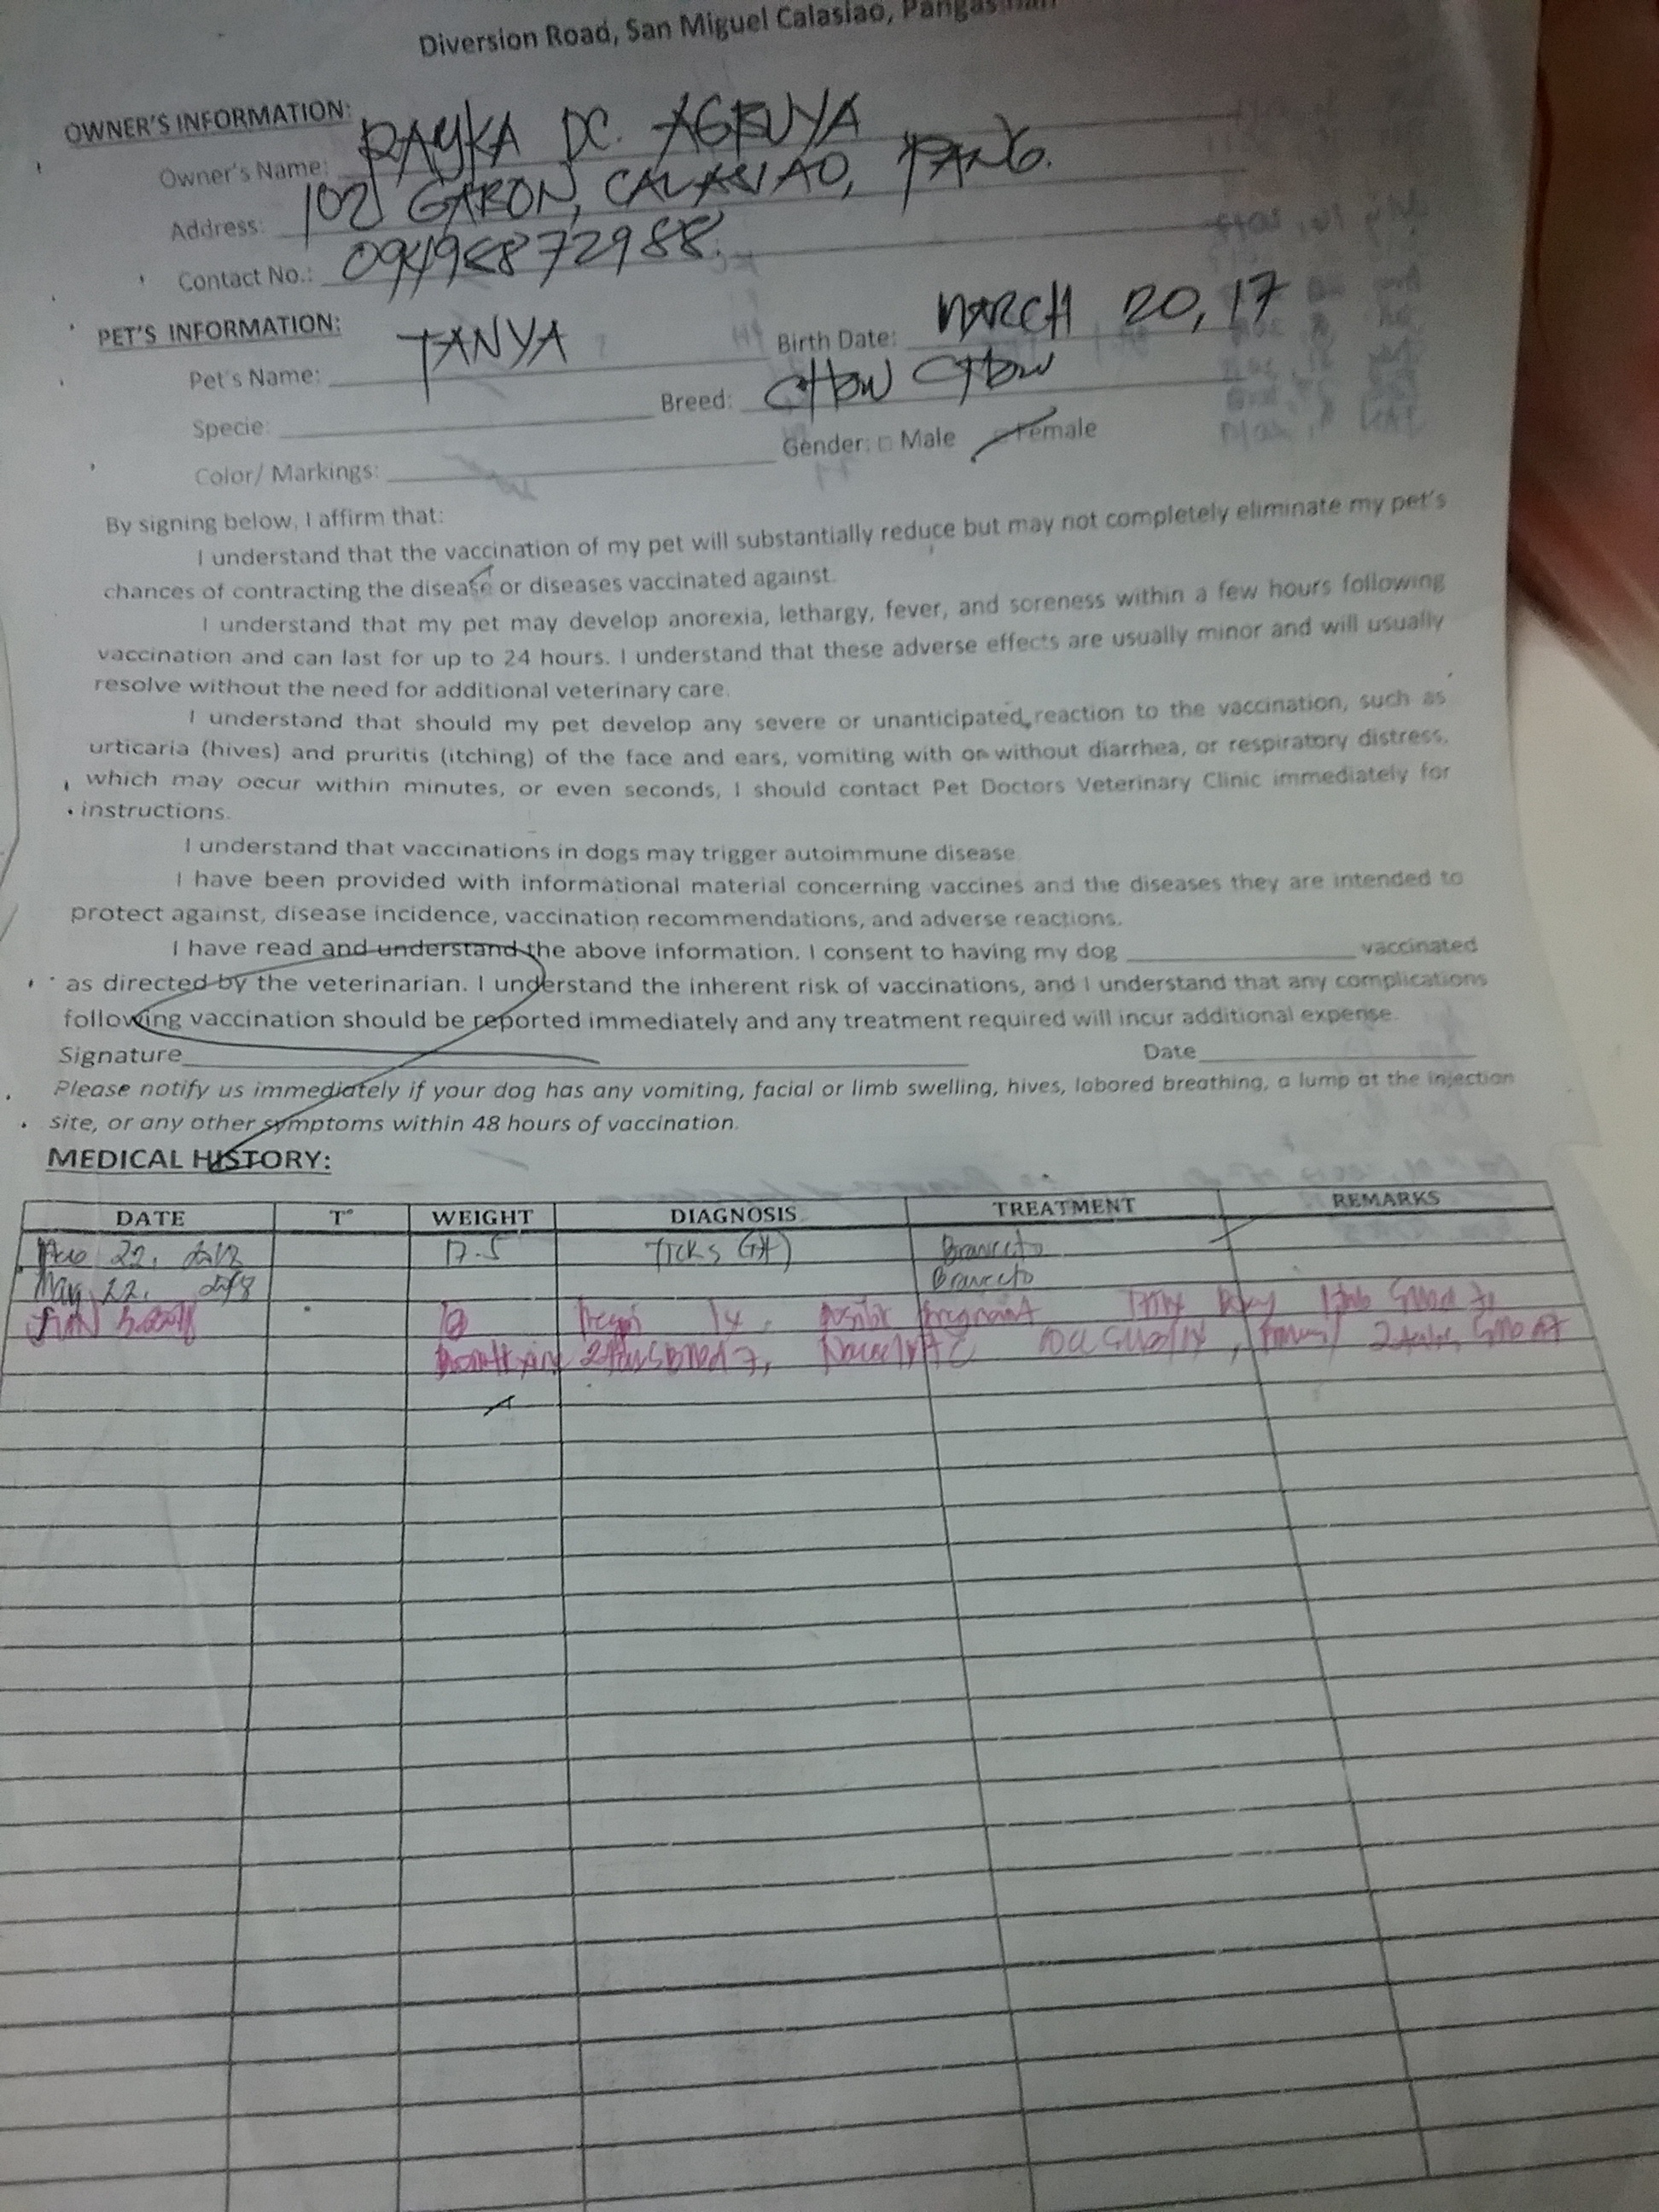 Diversion Road, San Miguel Calasiao, Pangasinan
OWNER'S INFORMATION:
Owner's Name: RAYKA DC. AGBUYA
Address: 102 GABON, CALASIAO, PANG.
Contact No.: 09498872988
PET'S INFORMATION:
Pet's Name: TANYA Birth Date: MARCH 20, 17
Specie: Breed: CHOW CHOW
Color/ Markings: Gender: Male Female
By signing below, I affirm that:
I understand that the vaccination of my pet will substantially reduce but may not completely eliminate my pet's
chances of contracting the disease or diseases vaccinated against.
I understand that my pet may develop anorexia, lethargy, fever, and soreness within a few hours following
vaccination and can last for up to 24 hours. I understand that these adverse effects are usually minor and will usually
resolve without the need for additional veterinary care.
I understand that should my pet develop any severe or unanticipated reaction to the vaccination, such as
urticaria (hives) and pruritis (itching) of the face and ears, vomiting with or without diarrhea, or respiratory distress,
which may occur within minutes, or even seconds, I should contact Pet Doctors Veterinary Clinic immediately for
instructions.
I understand that vaccinations in dogs may trigger autoimmune disease
I have been provided with informational material concerning vaccines and the diseases they are intended to
protect against, disease incidence, vaccination recommendations, and adverse reactions.
I have read and understand the above information. I consent to having my dog vaccinated
as directed by the veterinarian. I understand the inherent risk of vaccinations, and I understand that any complications
following vaccination should be reported immediately and any treatment required will incur additional expense.
Signature Date
Please notify us immediately if your dog has any vomiting, facial or limb swelling, hives, labored breathing, a lump at the injection
site, or any other symptoms within 48 hours of vaccination.
MEDICAL HISTORY:
DATE T° WEIGHT DIAGNOSIS TREATMENT REMARKS
22, 17.5 TICKS Bravecto
May 22, 2018 Bravecto
pregnant